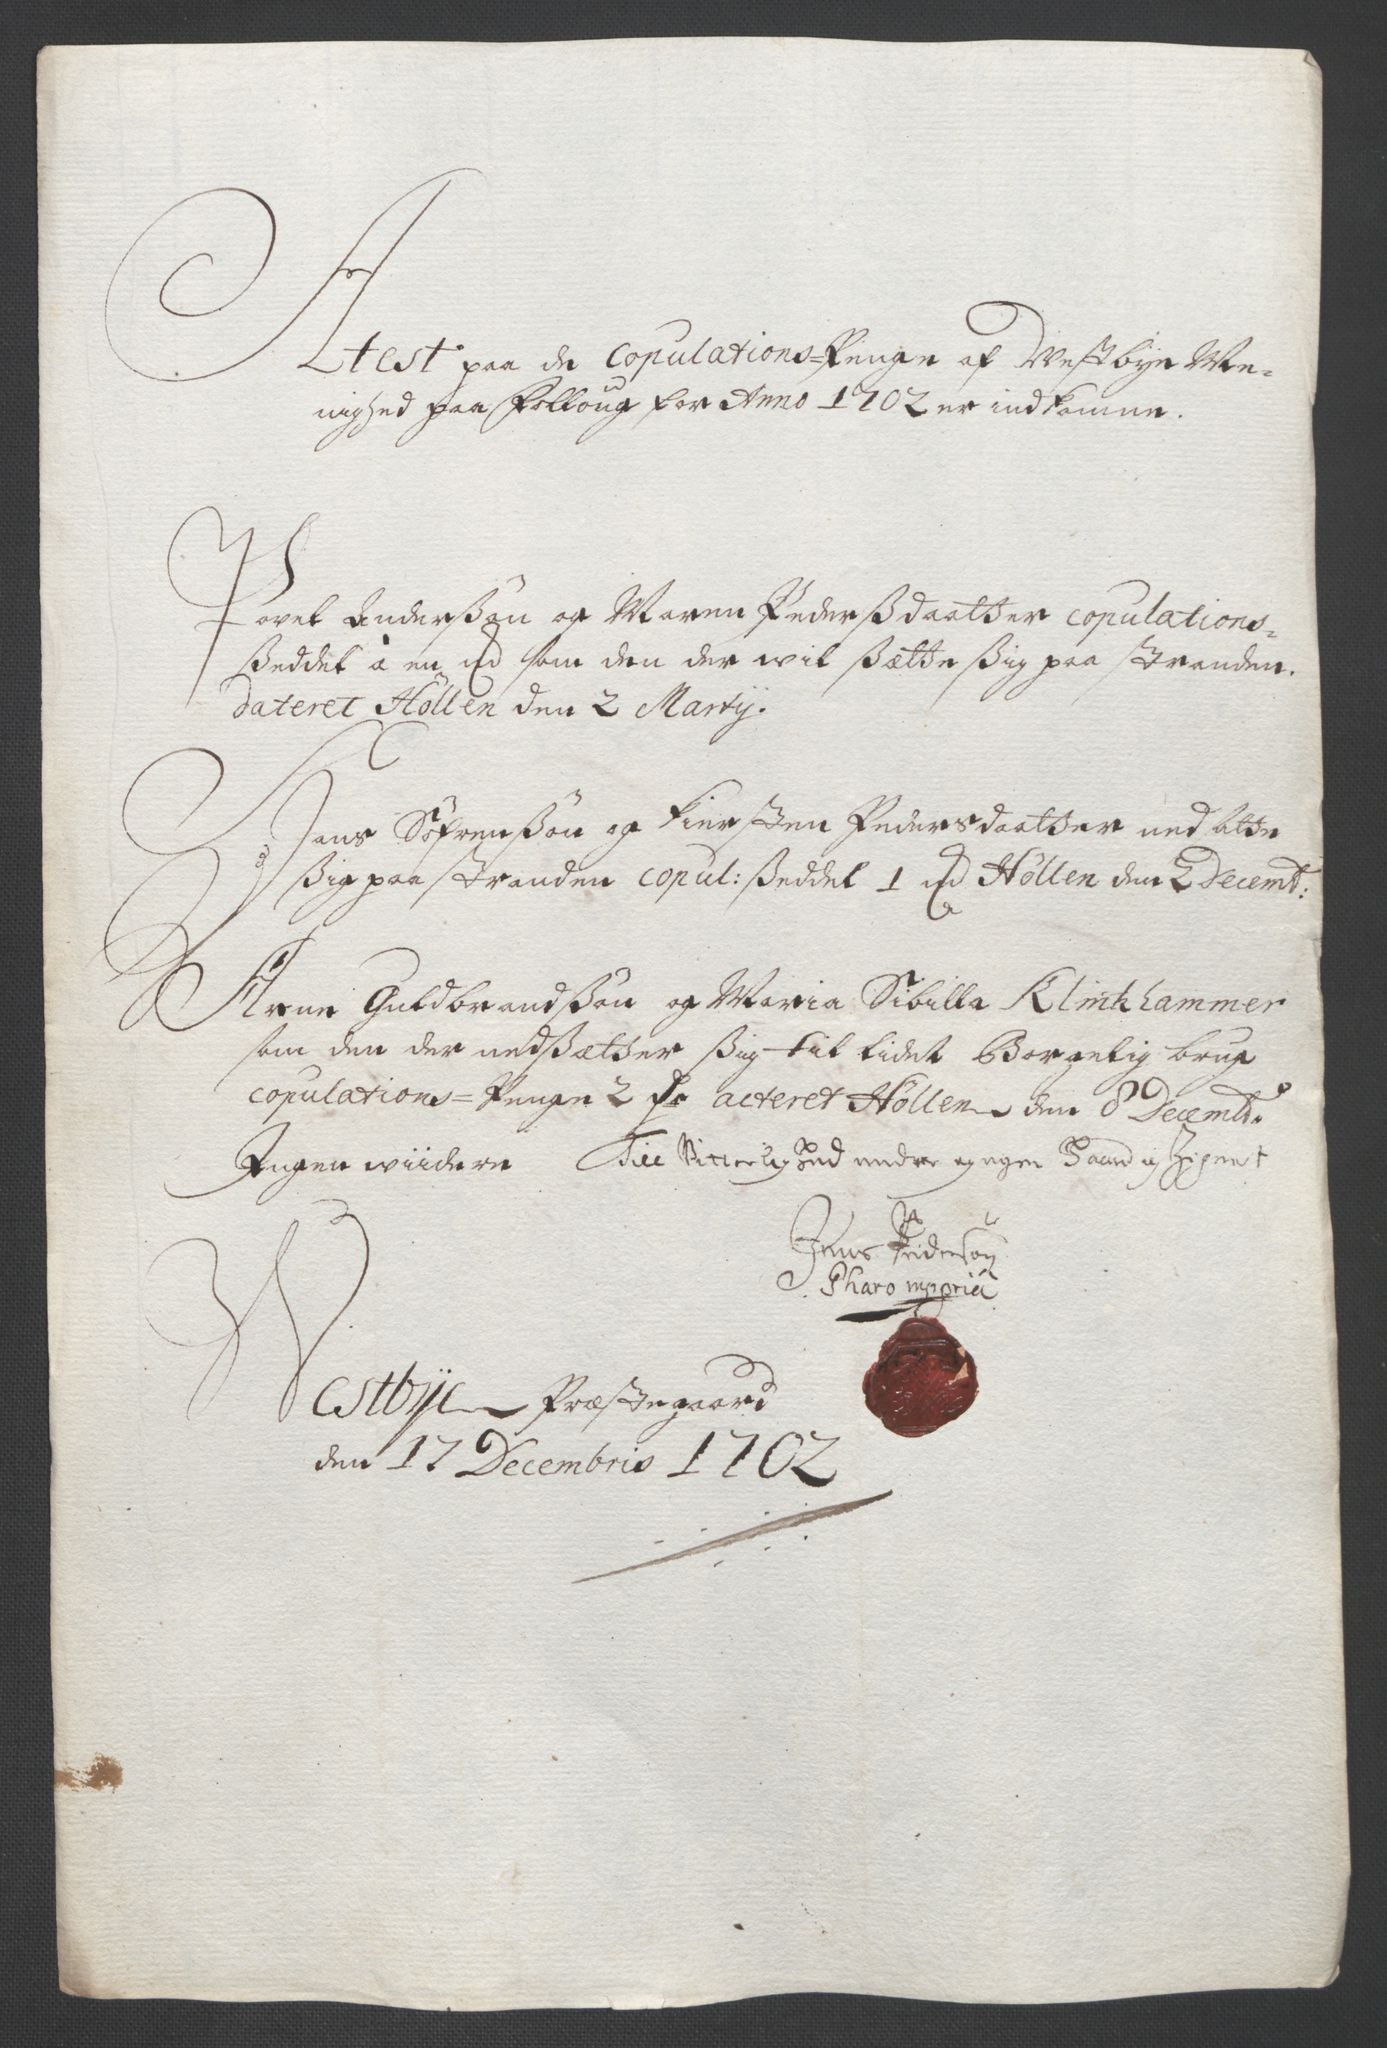 Attest paa de Copulations=Penge af Westbye Me=
nighed paa Folloug for Anno 1702 er indkomne.
Povel Anderssøn og Maren Pedersdaatter copulations=
Seddel à en rd som den der wil sætte sig paa stranden.
dateret Höllen den 2 Martij.
Hans Söfrenssøn og Kiersten Pedersdaatter nedsatte
sig paa stranden copul: seddel 1 rd Höllen den 2 Decemb:
Arne Guldbrandssøn og Maria Sibilla Klinkhammer
som den der nedsætter sig til lidet Borgelig brug
copulations=Penge 2 rd acteret Höllen den 8 Decemb:
Ingen wiidere Till Vitterlighed under egen Haand og Zignet
Jens Pedersøn
Pharo mppriâ
Westbye Præstegaard
den 17 Decembris 1702